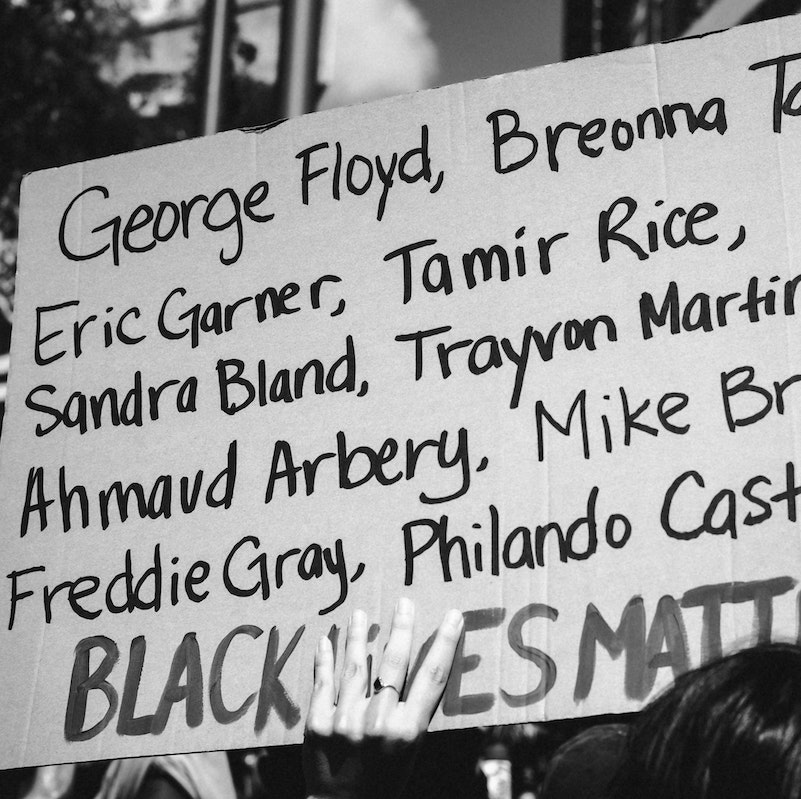 George Floyd, Breonna Ta
Eric Garner, Tamir Rice,
Sandra Bland, Trayvon Martin
Ahmaud Arbery, Mike Br
Freddie Gray, Philando Cast
BLACK LIVES MATT